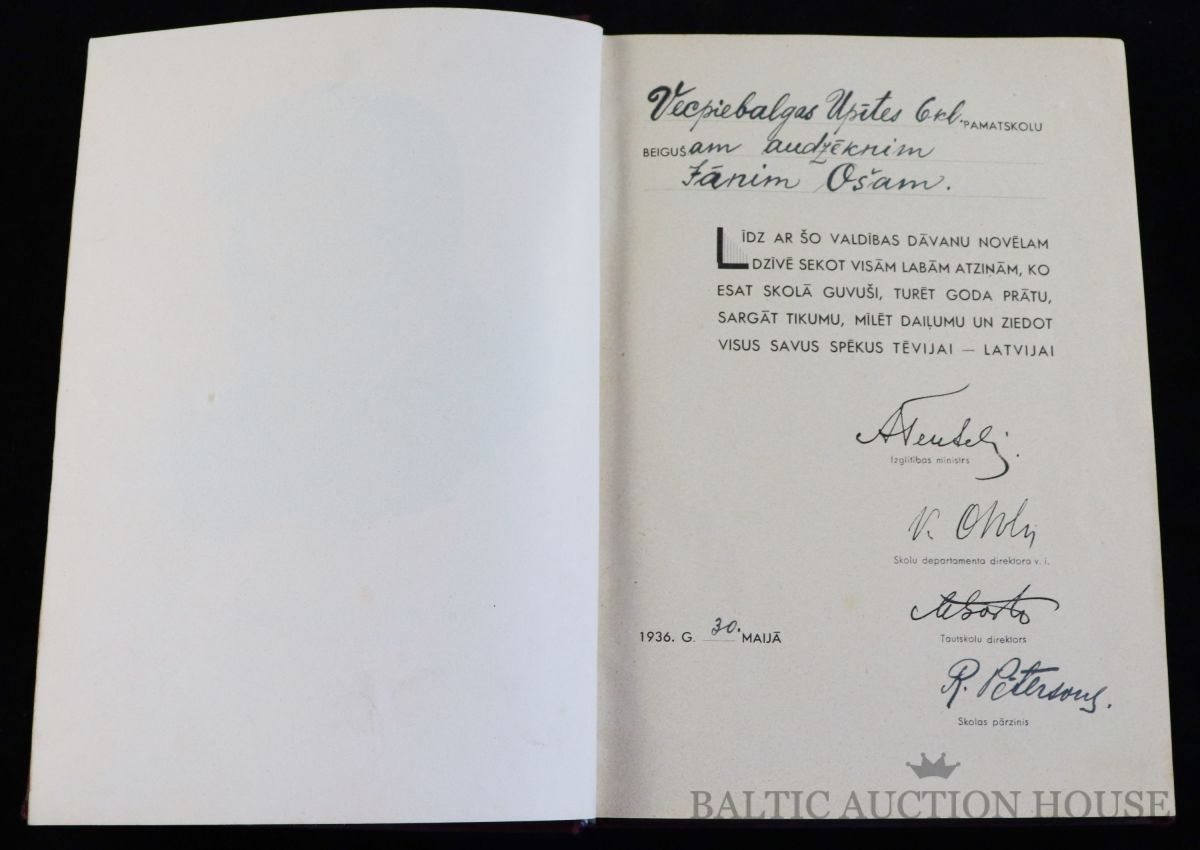 Vecpiebalgas Upītes 6kl. PAMATSKOLU
BEIGUŠam audzēknim
Jānim Ošam.
LĪDZ AR ŠO VALDĪBAS DĀVANU NOVĒLAM
DZĪVĒ SEKOT VISĀM LABĀM ATZIŅĀM, KO
ESAT SKOLĀ GUVUŠI, TURĒT GODA PRĀTU,
SARGĀT TIKUMU, MĪLĒT DAIĻUMU UN ZIEDOT
VISUS SAVUS SPĒKUS TĒVIJAI — LATVIJAI
Izglītības ministrs
V.
Skolu departamenta direktora v. i.
1936. G. 30. MAIJĀ
Tautskolu direktors
R. Pētersons.
Skolas pārzinis
BALTIC AUCTION HOUSE